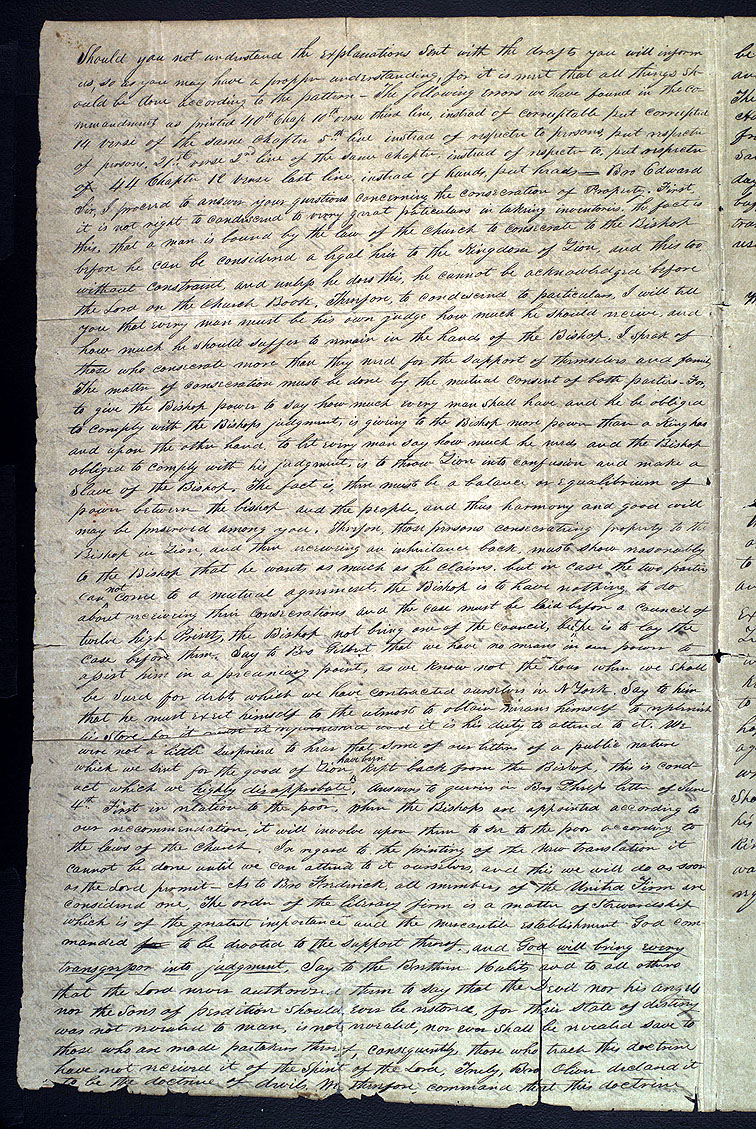 Should you not understand the explanations sent with the drafts you will inform
us, so as you may have a propper understanding, for it is meet that all things sh-
ould be done according to the pattern — The following errors we have found in the co-
mmandment as printed 40th Chap 10th verse third line, instead of corruptable put corrupted
14 verse of the same chapter 5th line instead of respecter to persons, put respecter
of persons, 21st verse 2nd line of the same chapter, instead of respecter to, put respecter
of 44 Chapter 12 verse last line, instead of hands, put heads — Bro Edward
Sir, I proceed to answer your questions concerning the consecration of Property. First,
it is not right to condescend to very great particulars in taking inventories, the fact is
this, that a man is bound by the law of the church to consecrate to the Bishop
before he can be considered a legal heir to the Kingdom of Zion, and this too
without constraint, and unless he does this, he cannot be acknowledged before
the Lord on the Church Book, Therefore, to condescend to particulars, I will tell
you that every man must be his own judge how much he should receive, and
how much he should suffer to remain in the hands of the Bishop. I speak of
those who consecrate more than they need for the support of themselves and famil
The matter of consecration must be done by the mutual consent of both parties — For,
to give the Bishop power to say how much every man shall have and he be obliged
to comply with the Bishops judgment, is giveing to the Bishop more power than a King has
and upon the other hand to let every man say how much he needs and the Bishop
obliged to comply with his judgment, is to throw Zion into confusion and make a
Slave of the Bishop. The fact is, there must be a balance or equalibrium of
power between the bishop and the people, and thus harmony and good will
may be preserved among you. Therefore, those persons consecrating property to the
Bishop in Zion, and then receiveing an inheritance back, must show reasonably
to the Bishop that he wants as much as he claims. but in case the two parties
can not come to a mutual agreement, the Bishop is to have nothing to do
about receiveing their consecrations and the case must be laid before a council of
twelve high Priests, the Bishop not being one of the council, but he is to lay the
case before them. Say to Bro Gilbert that we have no means in our power to
assist him in a pecuniary point, as we know not the hour when we shall
be sued for debts which we have contracted ourselves in N York. Say to him
that he must exert himself to the utmost to obtain means himself to replenish
his store for it must be replenished and it is his duty to attend to it. We
were not a little surprised to hear that some of our letters of a public nature
which we sent for the good of Zion have been kept back from the Bishop, this is cond-
uct which we highly disapprobate, Answers to queries in Bro Phelps letter of June
4th. First in relation to the poor, When the Bishops are appointed according to
our recommendation, it will involve upon them to see to the poor according to
the laws of the Church. In regard to the printing of the New translation it
cannot be done until we can attend to it ourselves, and this we will do as soon
as the Lord permit — As to Bro Frederick, all members of the United Firm are
considered one, The order of the Literary firm is a matter of Stewardship
which is of the greatest importance and the mercantile establishment God com-
manded to be devoted to the support thereof, and God will bring every
transgressor into judgment, Say to the Brethren Hulits and to all others
that the Lord never authorised them to say that the Devil nor his angels
nor the Sons of perdition should ever be restored, for their state of destiny
was not revealed to man, is not revealed, nor ever shall be revealed save to
those who are made partakers thereof, consequently, those who teach this doctrine
have not received it of the Spirit of the Lord, Truly, Bro Oliver declared it
to be the doctrine of devils, We therefore, command that this doctrine